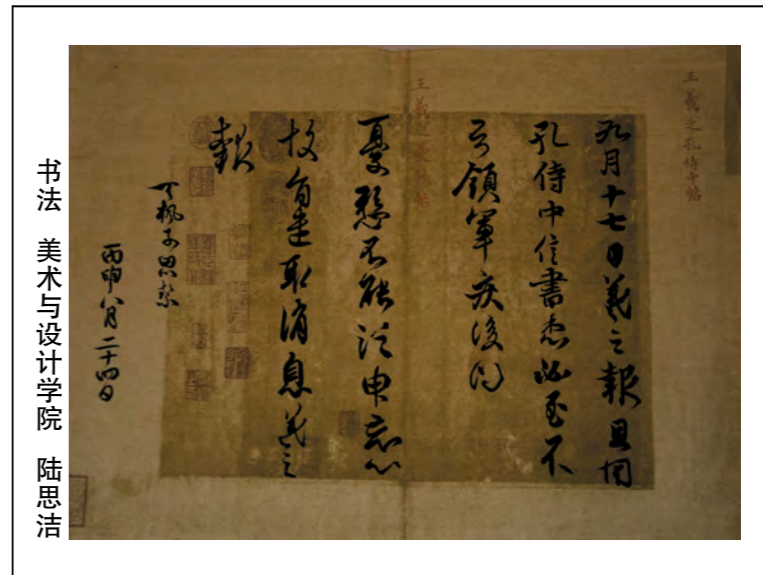 王羲之孔侍中帖
九月十七日羲之報且因
孔侍中信書想必至不
知領軍疾後問
憂懸不能須臾忘心
故旨遣取消息羲之
報
丙申八月二十四日
书法 美术与设计学院 陆思洁